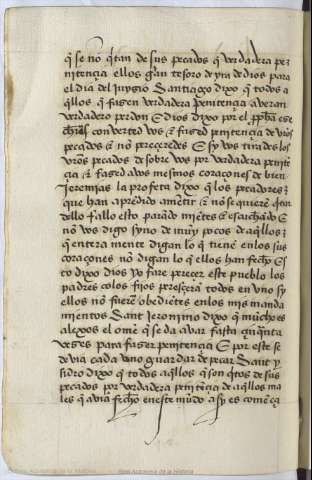 q̃ se no q̃tan de sus pecados q̃ verdadera pe
nitençia ellos gan̄ tesoro de yra de dios para
el dia del juyzio Santiago dixo q̃ todos a
q̃llos q̃ fazen verdadera penitençia averan
verdadero perdon E dios dixo por el ppħa eze
chiel converted vos & fazed penitençia de vr̃os
pecados & no pereçeredes E sy vos tirades los
vr̃os pecados de sobre vos por verdadera penitẽ
çia & fazed a vos mesmos coraçones de bien
Jeremias la profeta dixo q̃ los pecadores
que han aprẽdido a mẽtir & no se quierẽ q̃tar
dello fallo esto parãdo miẽtes & escuchãdo E
no vos digo syno de muy pocos de aq̃llos
q̃ entera mente digan lo q̃ tienẽ en los sus
coraçones no digan lo q̃ ellos han fecho E
to dixo dios yo fare pereçer este pueblo los
padres co los fijos pereçerã todos en vno sy
ellos no fuerẽ obediẽtes en los mis manda
mientos Sant Jeronimo dixo q̃ mucho es
alexos el ome q̃ se da avar fasta çinq̃nta
vezes para fazer penitençia E por este se
devia cada vno guardar de pecar Sant y
sidro dixo q̃ todos aq̃llos q̃ son q̃tos de sus
pecados por verdadera penitẽçia de aq̃llos ma
les q̃ aviã fecho en este mũdo asy es comẽça
Real Academia de la Historia